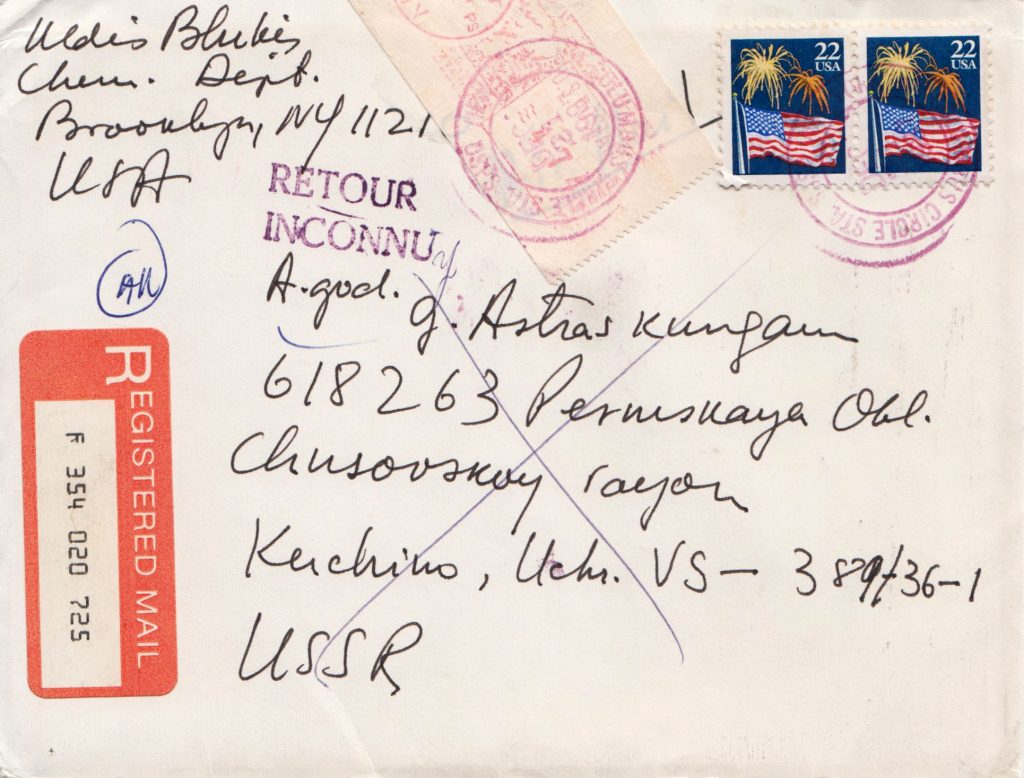 Uldis Blukis
Chem. Dept.
Brooklyn, NY 1121
USA
22
USA
22
USA
RETOUR
INCONNU
COLUMBUS CIRCLE STA.
CIRCLE STA.
A. god. g. Astras kungam
618263 Permskaya Obl.
Chusovskoy rayon
Kuchino, Uchr. VS-389/36-1
USSR
REGISTERED MAIL
F 354 020 725